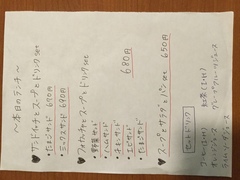 ～本日のランチ～
♥サンドイッチとスープとドリンクset
・たまごサンド 670円
・ミックスサンド 690円
♥フォカッチャとスープとドリンクset
・野菜サンド
・ハムサンド
・チキンサンド
・エビサンド 680円
・たまごサンド
♥スープとサラダとパンset 650円
セットドリンク
コーヒー(Ice.Hot) 紅茶(Ice.Hot)
オレンジジュース グレープフルーツジュース
ライムソーダジュース